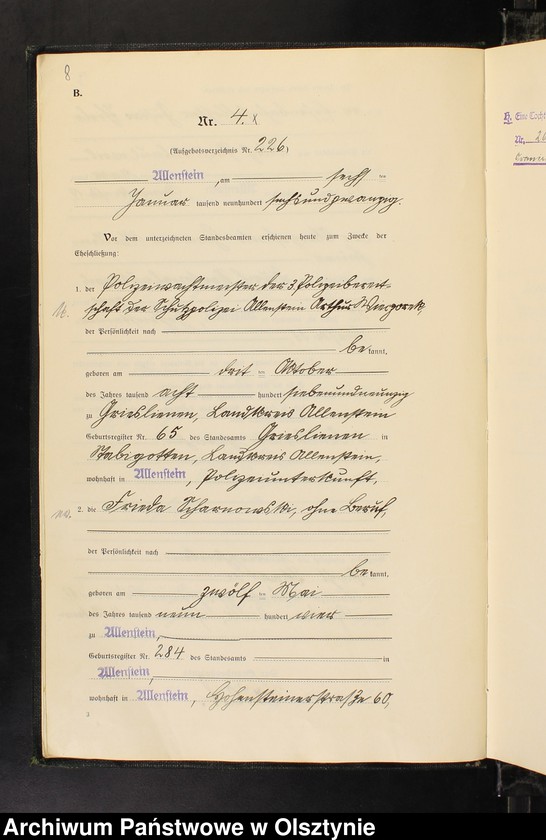 8
B.
Nr. 4.
(Aufgebotsverzeichnis Nr. 226)
Allenstein, am sechsten
Januar tausend neunhundert sechsundzwanzig.
Vor dem unterzeichneten Standesbeamten erschienen heute zum Zwecke der
Eheschließung:
1. der Polizeiwachtmeister der 3 Polizeibereit-
schaft der Schutzpolizei Allenstein Arthur Wieczorek,
der Persönlichkeit nach
bekannt,
geboren am dritten Oktober
des Jahres tausend acht hundert siebenundneunzig
zu Grieslienen, Landkreis Allenstein
Geburtsregister Nr. 65 des Standesamts Grieslienen in
Stabigotten, Landkreis Allenstein,
wohnhaft in Allenstein, Polizeiunterkunft,
2. die Frieda Scharnowski, ohne Beruf,
der Persönlichkeit nach
bekannt,
geboren am zwölften Mai
des Jahres tausend neun hundert vier
zu Allenstein,
Geburtsregister Nr. 284 des Standesamts in
Allenstein,
wohnhaft in Allenstein, Hohensteinerstraße 60,
H. Eine Tocht
Nr. 26
Archiwum Państwowe w Olsztynie